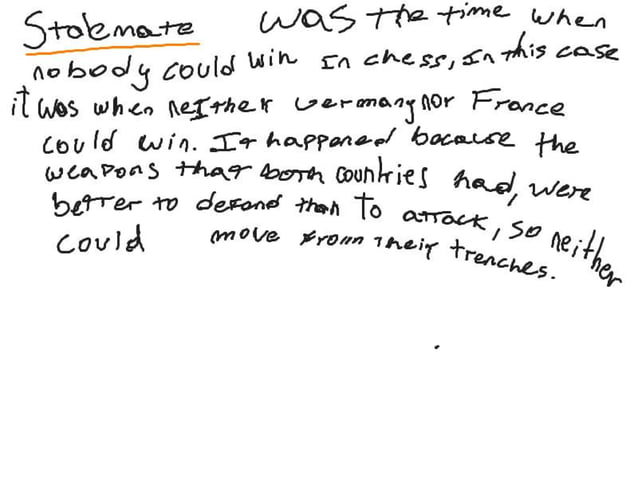 Stalemate was the time when
nobody could win in chess, in this case
it was when neither Germany nor France
could win. It happened because the
weapons that both countries had, were
better to defend than to attack, so neither
could move from their trenches.